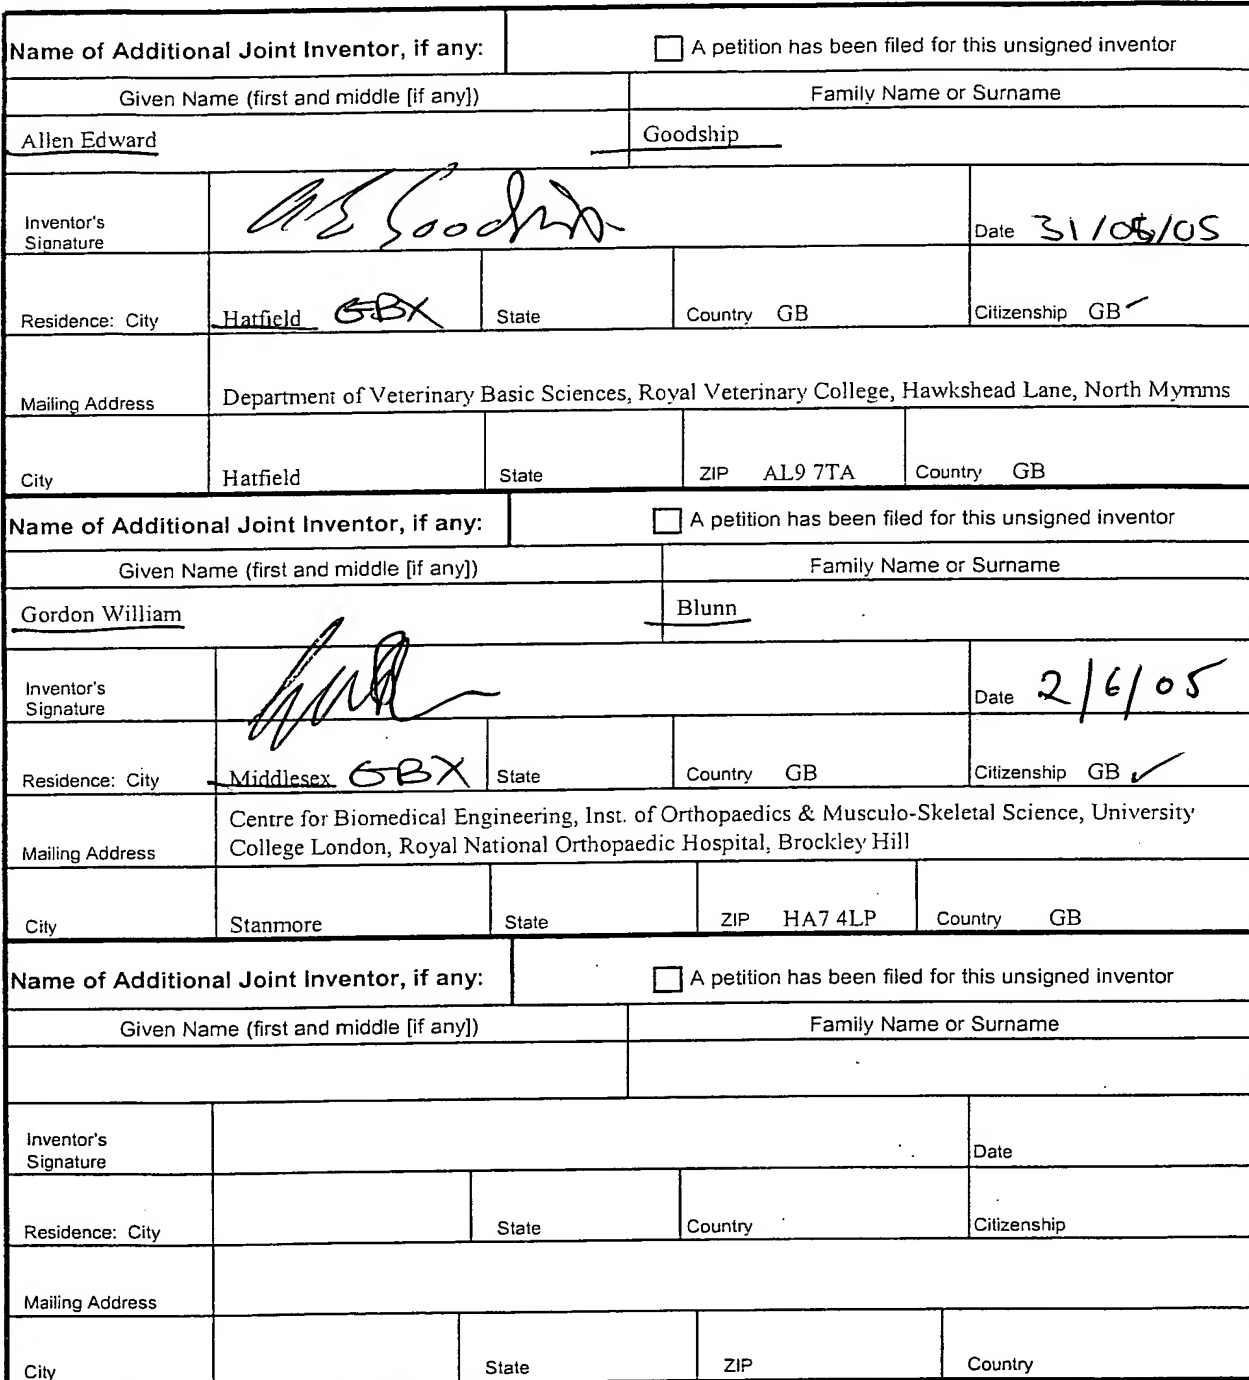 Name of Additional Joint Inventor, if any: A petition has been filed for this unsigned inventor
Given Name (first and middle [if any]) Family Name or Surname
Allen Edward Goodship
Inventor's
Signature A E Goodship Date 31/05/05
Residence: City Hatfield GBX State Country GB Citizenship GB
Mailing Address Department of Veterinary Basic Sciences, Royal Veterinary College, Hawkshead Lane, North Mymms
City Hatfield State ZIP AL9 7TA Country GB
Name of Additional Joint Inventor, if any: A petition has been filed for this unsigned inventor
Given Name (first and middle [if any]) Family Name or Surname
Gordon William Blunn
Inventor's
Signature Date 2/6/05
Residence: City Middlesex GBX State Country GB Citizenship GB
Centre for Biomedical Engineering, Inst. of Orthopaedics & Musculo-Skeletal Science, University
Mailing Address College London, Royal National Orthopaedic Hospital, Brockley Hill
City Stanmore State ZIP HA7 4LP Country GB
Name of Additional Joint Inventor, if any: A petition has been filed for this unsigned inventor
Given Name (first and middle [if any]) Family Name or Surname
Inventor's
Signature Date
Residence: City State Country Citizenship
Mailing Address
City State ZIP Country